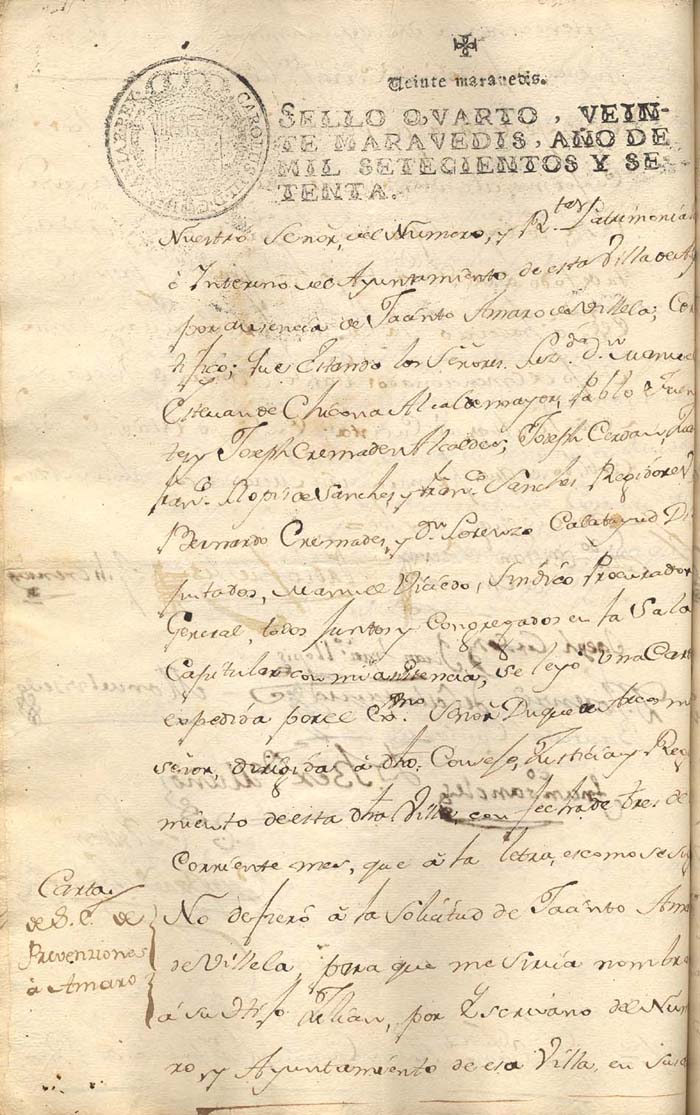 Veinte maravedis.
SELLO QVARTO, VEIN-
TE MARAVEDIS, AÑO DE
MIL SETECIENTOS Y SE-
TENTA.
CAROLUS III D. G. HISPANIAR. REX
Nuestro Señor, del Numero, y Rt. Patrimonial
è Interino del Ayuntamiento de esta Villa de
por ausencia de Jacinto Amaro de Villela; Cer
tifico; que Estando los Señores Dn. Manuel
Estevan de Chicona Alcalde mayor, Pablo
y Joseph Cremades Alcaldes; Joseph Cerdan
Franco. Llopis de Sanches, y Franco. Sanches Regidores
Bernardo Cremades, y Dn. Lorenzo Calatayud Di
putados, Manuel Ricedo, Sindico Procurador
General, todos juntos y Congregados en la Sala
Capitular con mi asistencia, se leyo una Carta
expedida por el Exmo. Señor Duque de Arcos mi
señor, dirigida à dho. Consejo, Justicia y Regi
miento de esta dha Villa, con fecha de tres del
Corriente mes, que à la letra, es como se sig
Carta
de S. E. de
Prevenziones
à Amaro
No defiero à la Solicitud de Jacinto Ama
de Villela, para que me sirva nombra
à su Hijo Julian, por Escrivano del Nume
ro, y Ayuntamiento de esa Villa, en su